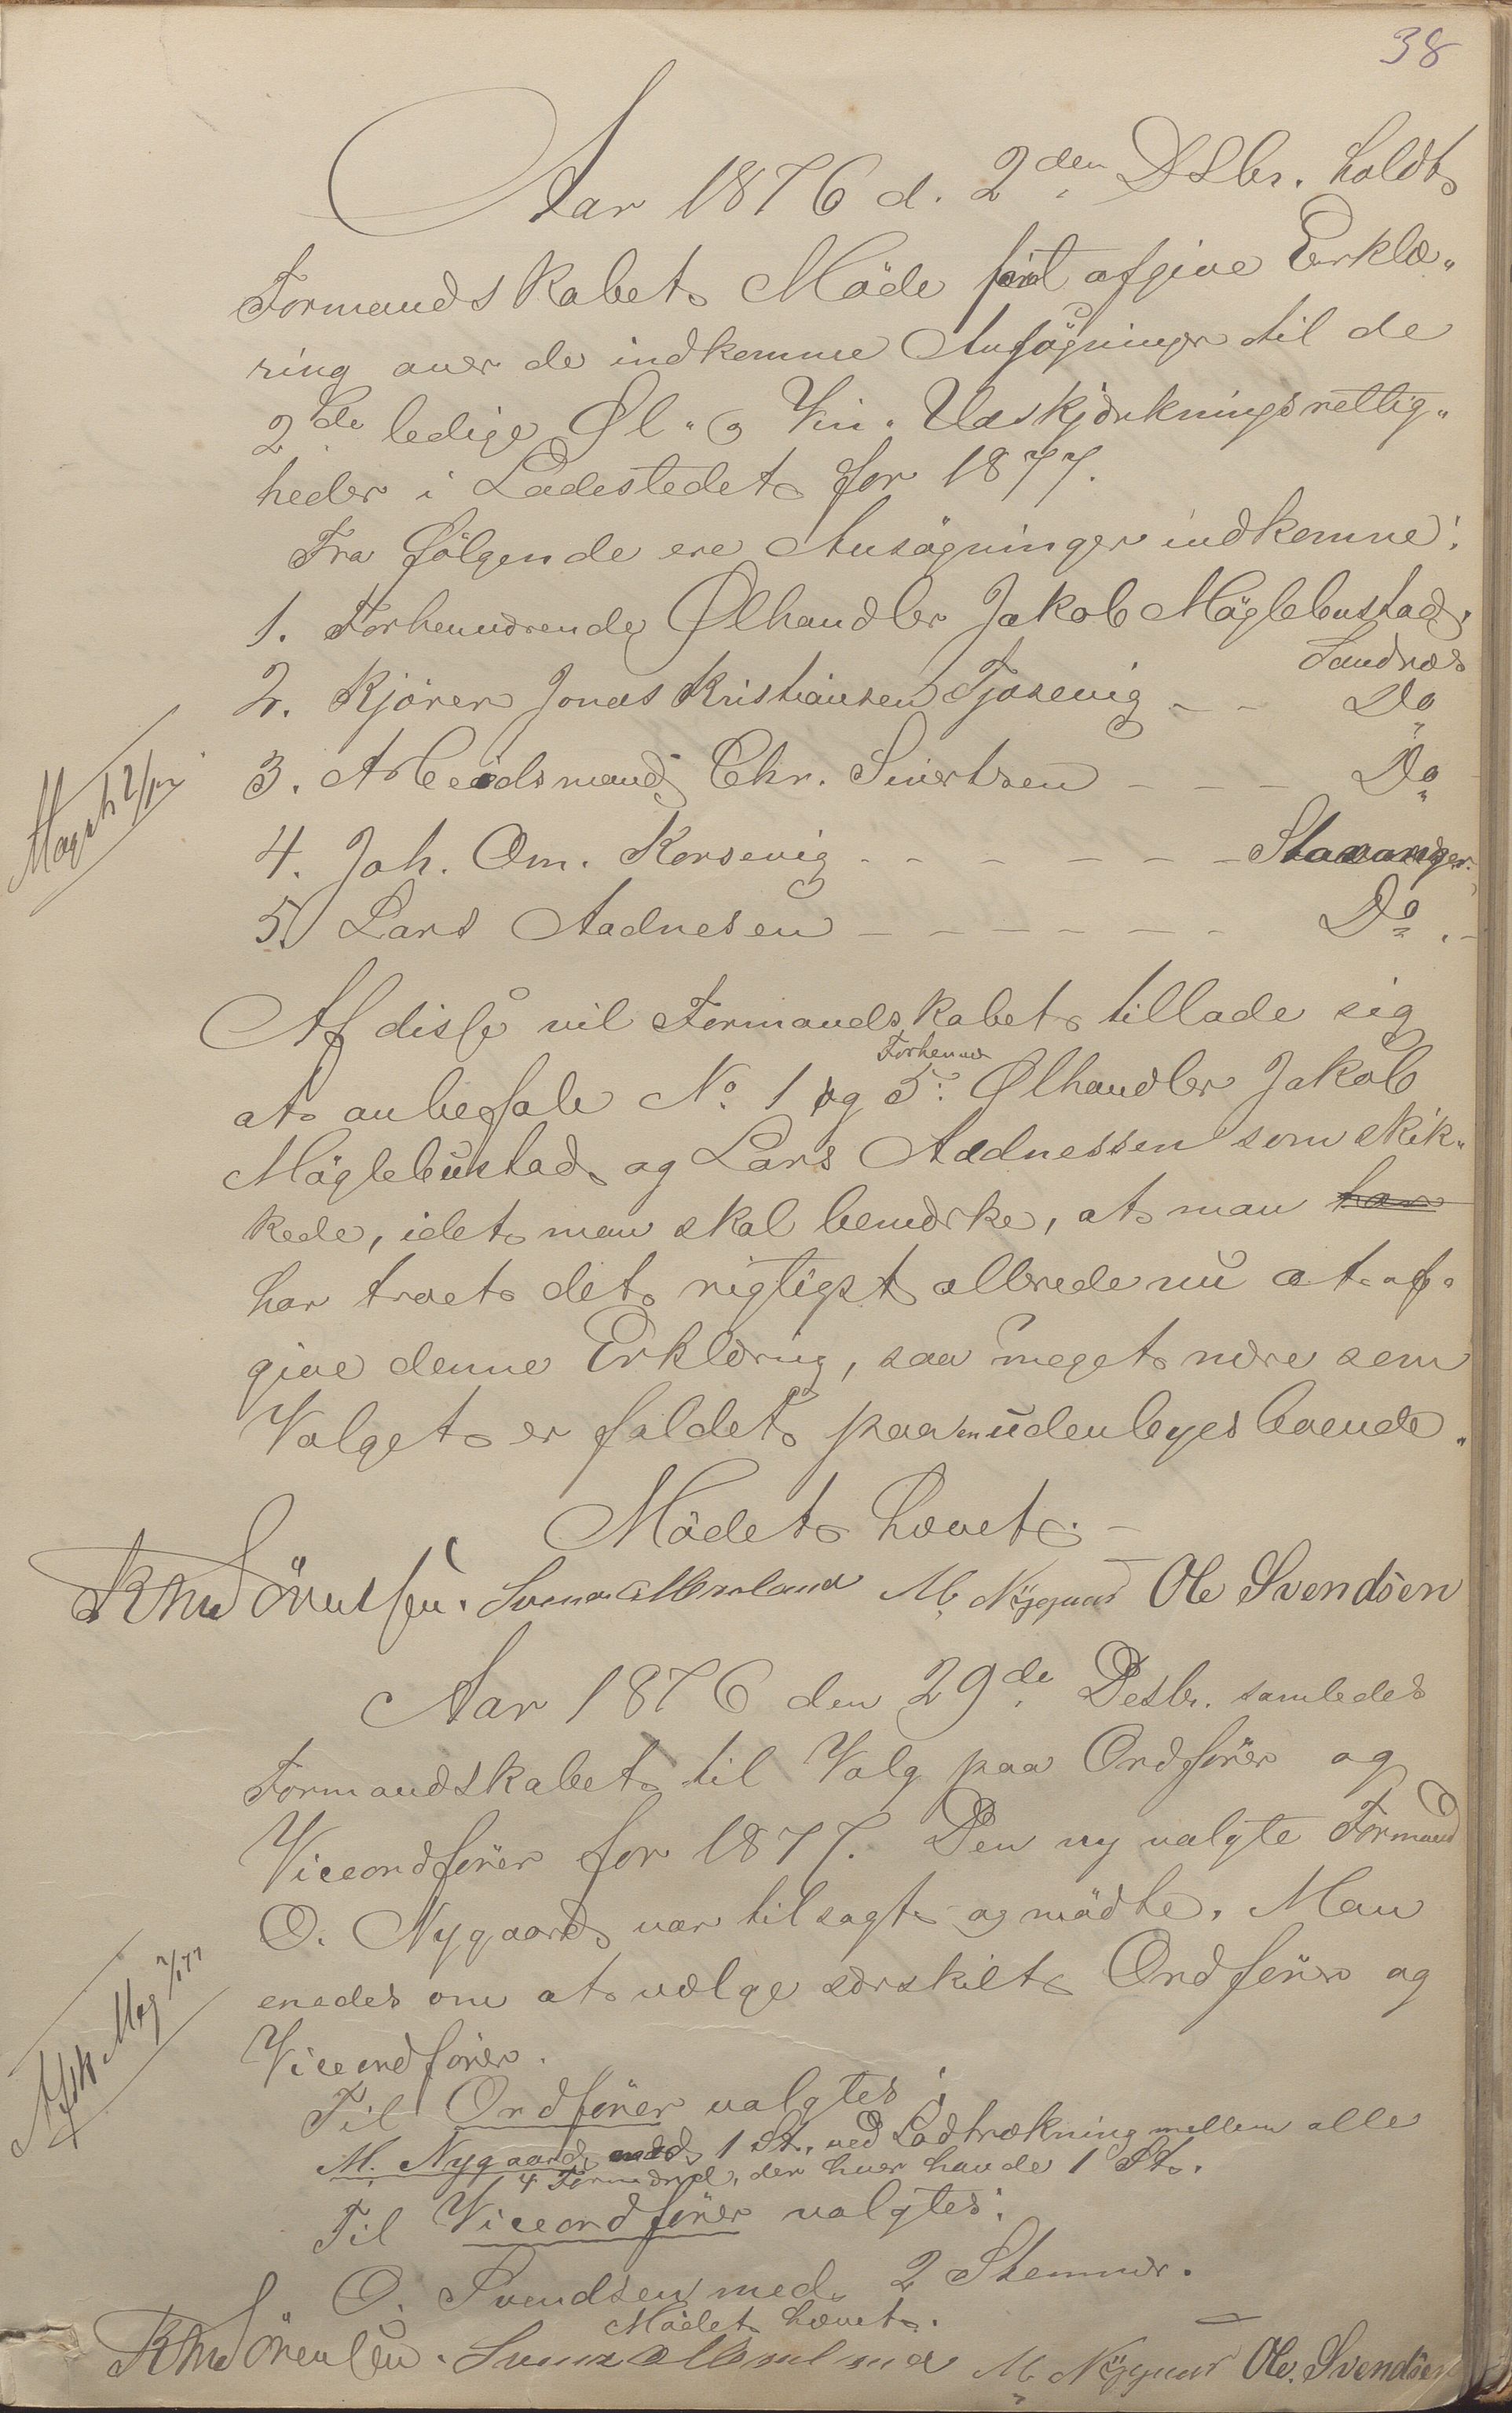 38
Aar 1876 d. 2den Dsbr. holdt
Formandskabet Möde for at afgive Erklæ-
ring over de indkomne Ansögninger til de
2de ledige Øl- og Vin-Udskjænkningsrettig-
heder i Ladestedet for 1877.
Fra fölgende ere Ansögninger indkomne:
1. Forhenværende Ølhandler Jakob Möglebustad,
Sandnæs
2. Kjörer Jonas Kristiansen Tjosevig - - Do
3. Arbeidsmand Chr. Sivertsen - - - Do
4. Joh. Om. Korsevig - - - - - - Stavanger.
5. Lars Aadnesen - - - - - - Do. -
Af disse vil Formandskabet tillade sig
at anbefale No. 1 og 5: Forhenv. Ølhandler Jakob
Möglebustad og Lars Aadnessen som skik-
kede, idet man skal bemærke, at man har
har troet det rigtigst allerede nu at af-
give denne Erklæring, saa meget mere som
Valget er faldet paa en udenbyes boende.
Mödet hævet. -
Svend M. Nygaard Ole Svendsen
Aar 1876 den 29de Desbr. samledes
Formandskabet til Valg paa Ordförer og
Viceordförer for 1877. Den ny valgte Formand
O. Nygaard var tilsagt og mödte. Man
enedes om at vælge særskilt Ordförer og
Viceordförer.
Til Ordförer valgtes:
M. Nygaard med 1 St. ved Lodtrækning mellem alle
4 Formænd, der hver havde 1 St.
Til Viceordförer valgtes:
O. Svendsen med 2 Stemmer.
Mödet hævet.
M. Nygaard Ole Svendsen